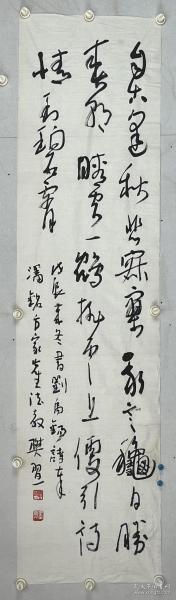 自古逢秋悲寂寥 我言秋日勝
春朝 晴空一鶴排雲上 便引詩
情到碧霄
戊辰嘉冬書劉禹錫詩奉
方家先生法教 樊習一